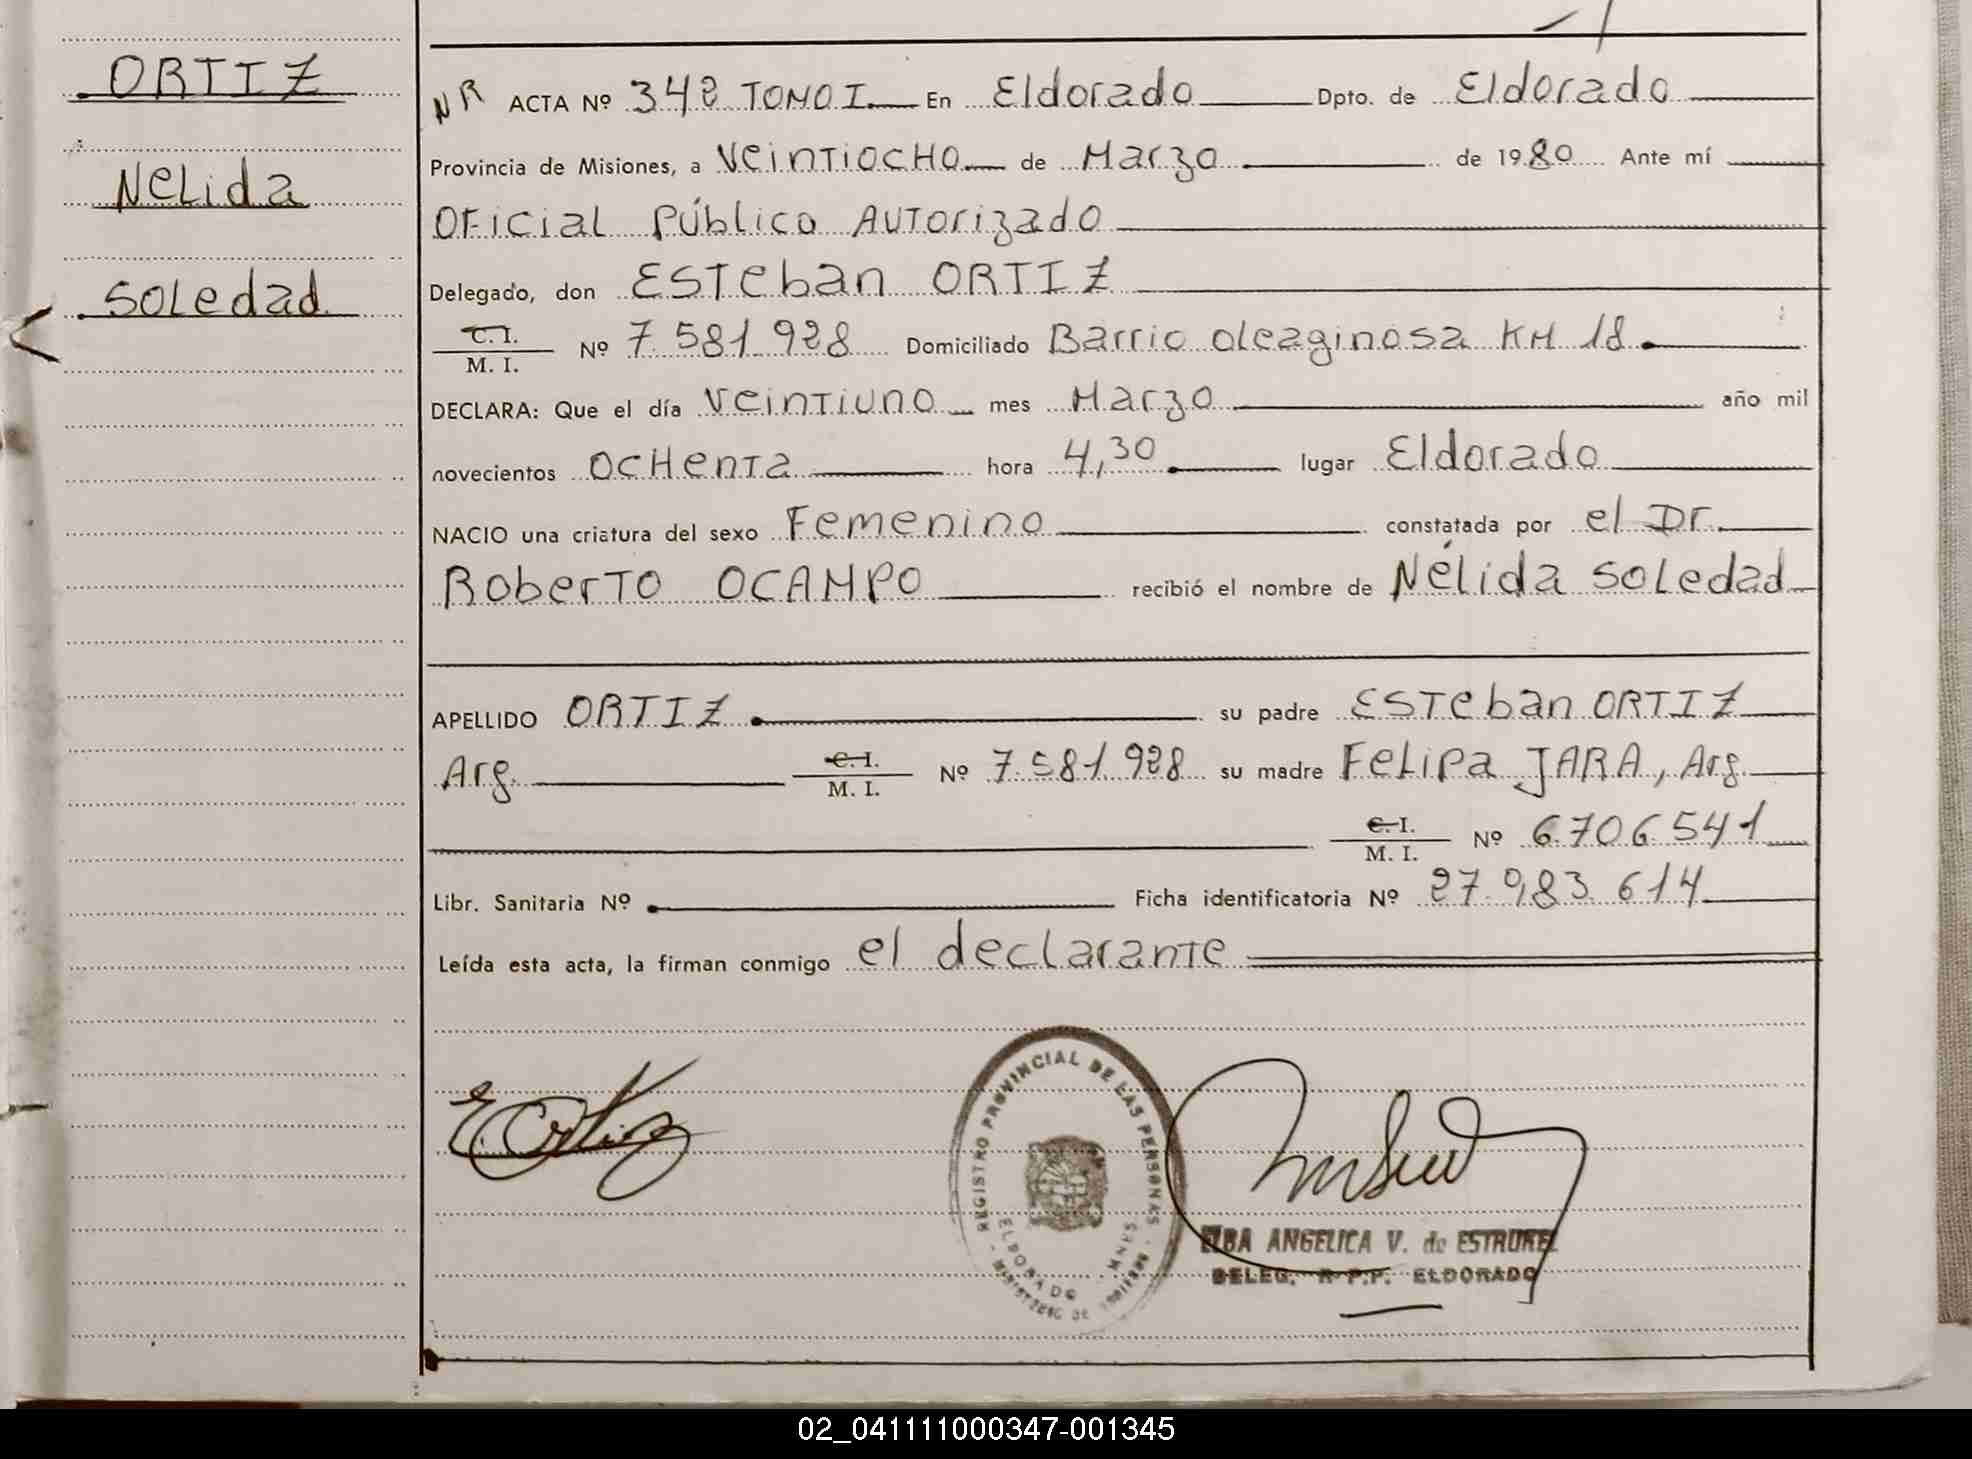 ORTIZ
Nelida
Soledad
NR ACTA Nº 342 TOMO I En Eldorado Dpto. de Eldorado
Provincia de Misiones, a Veintiocho de Marzo de 1980 Ante mí
Oficial Público Autorizado
Delegado, don Esteban ORTIZ
C. I. / M. I. Nº 7.581.928 Domiciliado Barrio oleaginosa KM 18
DECLARA: Que el día Veintiuno mes Marzo año mil
novecientos ochenta hora 4,30 lugar Eldorado
NACIO una criatura del sexo Femenino constatada por el Dr.
Roberto OCAMPO recibió el nombre de Nélida Soledad
APELLIDO ORTIZ su padre Esteban ORTIZ
Arg. C. I. / M. I. Nº 7.581.928 su madre Felipa JARA, Arg.
C. I. / M. I. Nº 6.706.541
Libr. Sanitaria Nº Ficha identificatoria Nº 27.983.614
Leída esta acta, la firman conmigo el declarante
E. Ortiz
REGISTRO PROVINCIAL DE LAS PERSONAS
ELDORADO - MNES.
MINISTERIO DE GOBIERNO
ELBA ANGELICA V. de
DELEG. R.P.P. ELDORADO
02_041111000347-001345